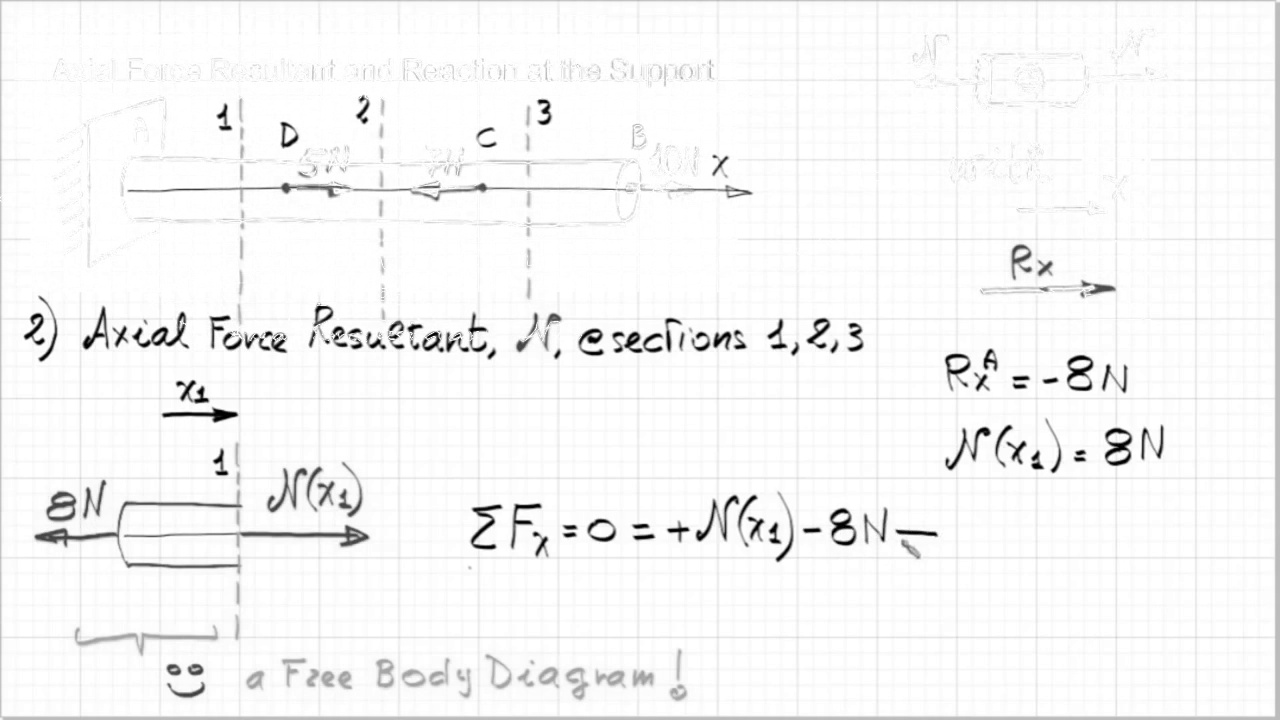 Axial Force Resultant and Reaction at the Support
N N
1 2 3
A D C B
5N 7N 10N x
with
x
Rx
2) Axial Force Resultant, N, @ sections 1, 2, 3
x1
RxA = -8N
N(x1) = 8N
1
8N N(x1)
ΣFx = 0 = +N(x1) - 8N
a Free Body Diagram!